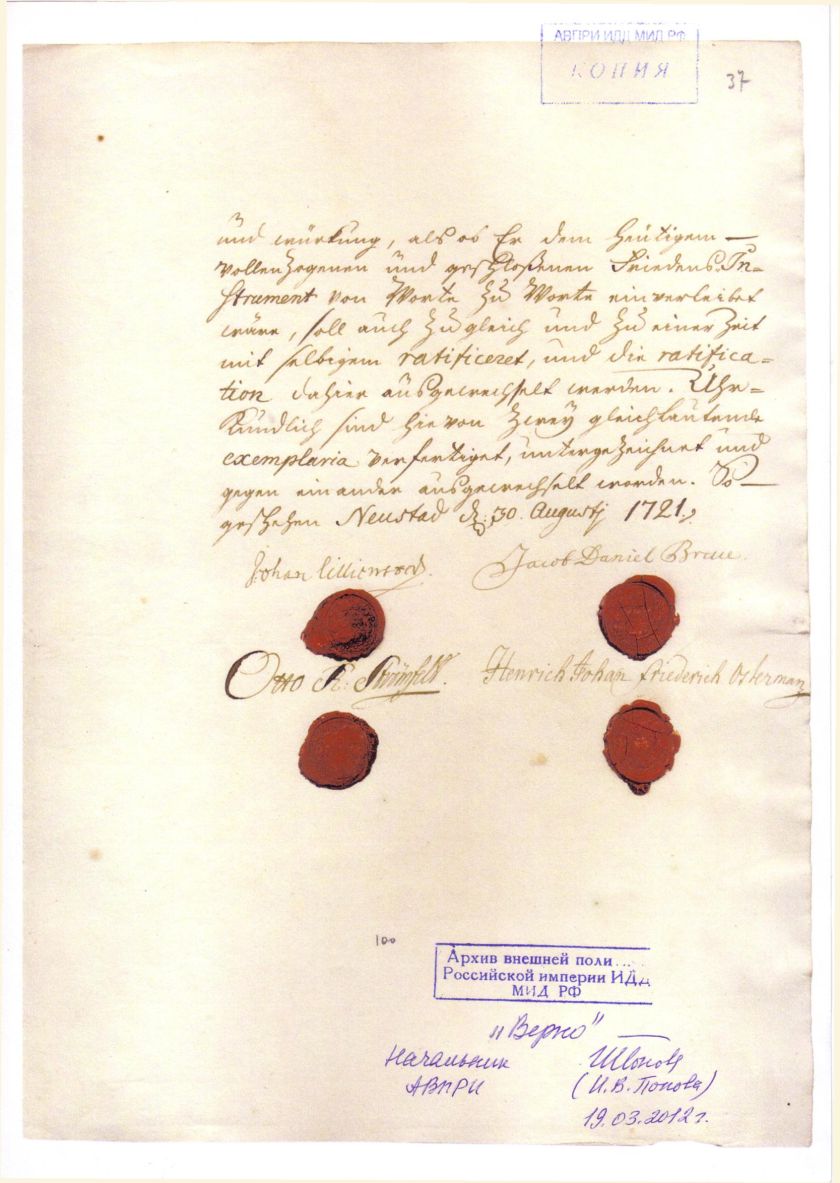 АВПРИ ИДД МИД РФ
КОПИЯ
37
und würkung, als ob Er dem heütigem —
vollenzogenen und geschloßenen Friedens In-
strument von Worte zu Worte einverleibet
wäre, soll auch zugleich und zu einer Zeit
mit selbigem ratificeret, und die ratifica-
tion dahier ausgewechselt werden. Uhr-
kündlich sind hievon zwey gleichlautende
exemplaria verfertiget, unterzeichnet und
gegen einander ausgewechselt worden. So —
geschehen Neustad d. 30. Augustj 1721.
Johan Lillienstedt. Jacob Daniel Bruce.
Otto R: Strömfelt. Henrich Johan Friederich Osterman
100
Архив внешней поли
Российской империи ИДД
МИД РФ
„Верно"
Начальник
АВПРИ (И.В. Попова)
19.03.2012г.